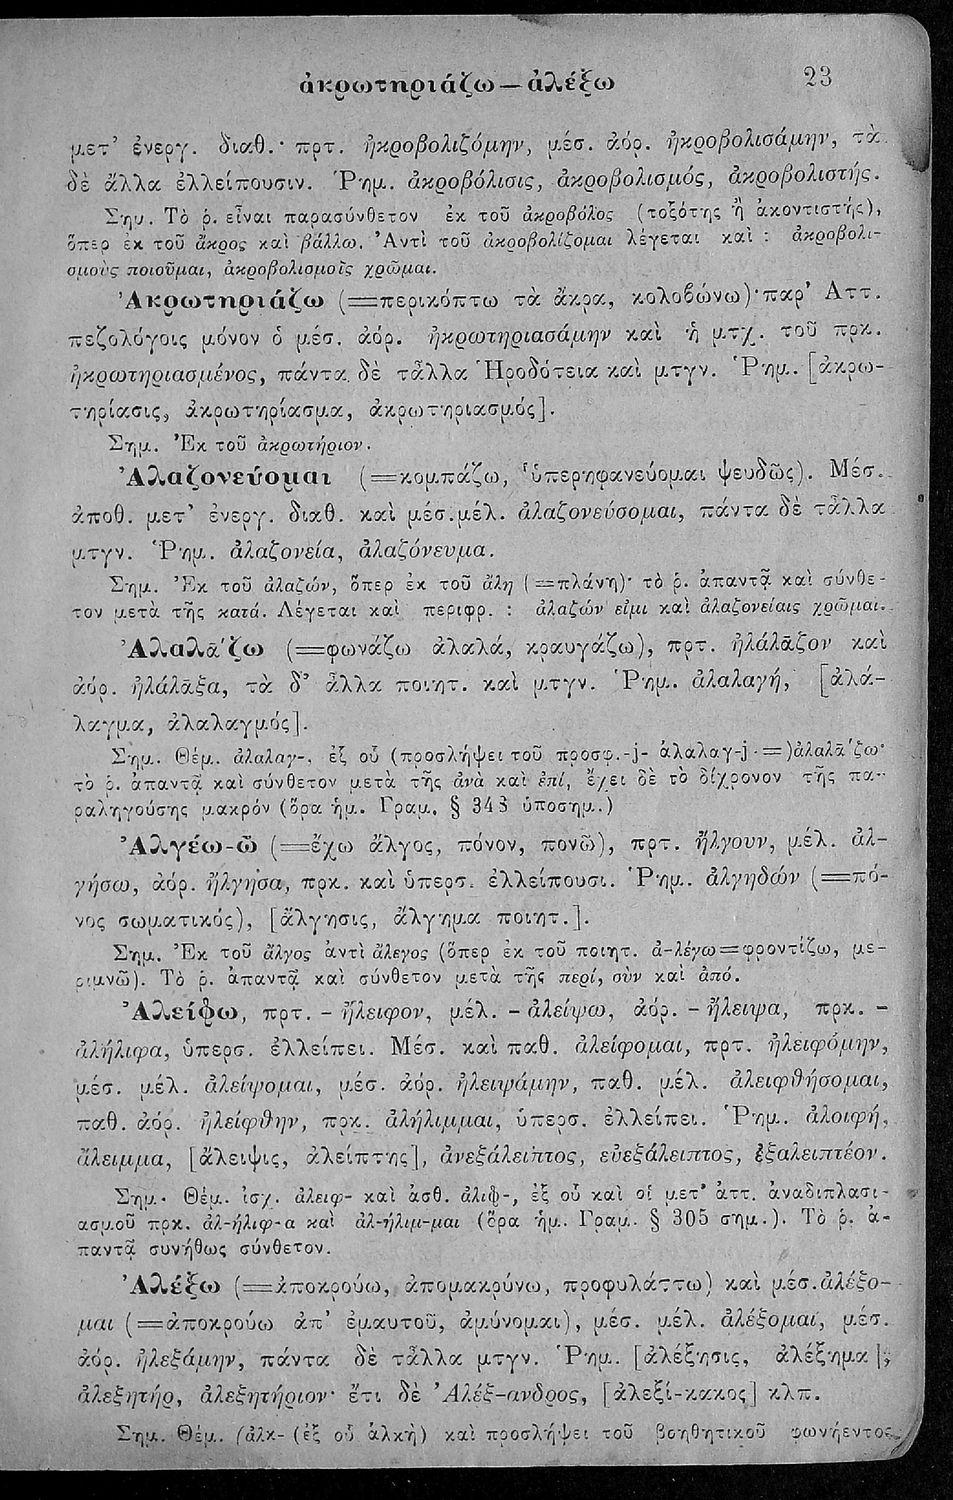 ἀκρωτηριάζω — ἀλέξω 23
μετ’ ἐνεργ. διαθ.· πρτ. ἠκροβολιζόμην, μέσ. ἀόρ. ἠκροβολισάμην, τὰ
δὲ ἄλλα ἐλλείπουσιν. Ῥημ. ἀκροβόλισις, ἀκροβολισμός, ἀκροβολιστής.
Σημ. Τὸ ῥ. εἶναι παρασύνθετον ἐκ τοῦ ἀκροβόλος (τοξότης ἢ ἀκοντιστής),
ὅπερ ἐκ τοῦ ἄκρος καὶ βάλλω. Ἀντὶ τοῦ ἀκροβολίζομαι λέγεται καὶ : ἀκροβολι-
σμοὺς ποιοῦμαι, ἀκροβολισμοῖς χρῶμαι.
Ἀκρωτηριάζω (=περικόπτω τὰ ἄκρα, κολοβώνω)· παρ’ Ἀττ.
πεζολόγοις μόνον ὁ μέσ. ἀόρ. ἠκρωτηριασάμην καὶ ἡ μτχ. τοῦ πρκ.
ἠκρωτηριασμένος, πάντα δὲ τἆλλα Ἡροδότεια καὶ μτγν. Ῥημ. [ἀκρω-
τηρίασις, ἀκρωτηρίασμα, ἀκρωτηριασμός].
Σημ. Ἐκ τοῦ ἀκρωτήριον.
Ἀλαζονεύομαι (=κομπάζω, ὑπερηφανεύομαι ψευδῶς). Μέσ.
ἀποθ. μετ’ ἐνεργ. διαθ. καὶ μέσ. μέλ. ἀλαζονεύσομαι, πάντα δὲ τἆλλα
μτγν. Ῥημ. ἀλαζονεία, ἀλαζόνευμα.
Σημ. Ἐκ τοῦ ἀλαζών, ὅπερ ἐκ τοῦ ἄλη (=πλάνη)· τὸ ῥ. ἀπαντᾷ καὶ σύνθε-
τον μετὰ τῆς κατά. Λέγεται καὶ περιφρ. : ἀλαζών εἰμι καὶ ἀλαζονείαις χρῶμαι.
Ἀλαλᾱ́ζω (=φωνάζω ἀλαλά, κραυγάζω), πρτ. ἠλάλᾱζον καὶ
ἀόρ. ἠλάλᾱξα, τὰ δ’ ἄλλα ποιητ. καὶ μτγν. Ῥημ. ἀλαλαγή, [ἀλά-
λαγμα, ἀλαλαγμός].
Σημ. Θέμ. ἀλαλαγ-, ἐξ οὗ (προσλήψει τοῦ προσφ. -j- ἀλαλαγ-j-=)ἀλαλᾱ́ζω·
τὸ ῥ. ἀπαντᾷ καὶ σύνθετον μετὰ τῆς ἀνὰ καὶ ἐπί, ἔχει δὲ τὸ δίχρονον τῆς πα-
ραληγούσης μακρόν (ὅρα ἡμ. Γραμ. § 343 ὑποσημ.)
Ἀλγέω-ῶ (=ἔχω ἄλγος, πόνον, πονῶ), πρτ. ἤλγουν, μέλ. ἀλ-
γήσω, ἀόρ. ἤλγησα, πρκ. καὶ ὑπερσ. ἐλλείπουσι. Ῥημ. ἀλγηδών (=πό-
νος σωματικός), [ἄλγησις, ἄλγημα ποιητ.].
Σημ. Ἐκ τοῦ ἄλγος ἀντὶ ἄλεγος (ὅπερ ἐκ τοῦ ποιητ. ἀ-λέγω=φροντίζω, με-
ριμνῶ). Τὸ ῥ. ἀπαντᾷ καὶ σύνθετον μετὰ τῆς περί, σὺν καὶ ἀπό.
Ἀλείφω, πρτ. - ἤλειφον, μέλ. - ἀλείψω, ἀόρ. - ἤλειψα, πρκ. -
ἀλήλιφα, ὑπερσ. ἐλλείπει. Μέσ. καὶ παθ. ἀλείφομαι, πρτ. ἠλειφόμην,
μέσ. μέλ. ἀλείψομαι, μέσ. ἀόρ. ἠλειψάμην, παθ. μέλ. ἀλειφθήσομαι,
παθ. ἀόρ. ἠλείφθην, πρκ. ἀλήλιμμαι, ὑπερσ. ἐλλείπει. Ῥημ. ἀλοιφή,
ἄλειμμα, [ἄλειψις, ἀλείπτης], ἀνεξάλειπτος, εὐεξάλειπτος, ἐξαλειπτέον.
Σημ. Θέμ. ἰσχ. ἀλειφ- καὶ ἀσθ. ἀλιφ-, ἐξ οὗ καὶ οἱ μετ’ ἀττ. ἀναδιπλασι-
ασμοῦ πρκ. ἀλ-ήλιφ-α καὶ ἀλ-ήλιμ-μαι (ὅρα ἡμ. Γραμ. § 305 σημ.). Τὸ ῥ. ἀ-
παντᾷ συνήθως σύνθετον.
Ἀλέξω (=ἀποκρούω, ἀπομακρύνω, προφυλάττω) καὶ μέσ. ἀλέξο-
μαι (=ἀποκρούω ἀπ’ ἐμαυτοῦ, ἀμύνομαι), μέσ. μέλ. ἀλέξομαι, μέσ.
ἀόρ. ἠλεξάμην, πάντα δὲ τἆλλα μτγν. Ῥημ. [ἀλέξησις, ἀλέξημα],
ἀλεξητήρ, ἀλεξητήριον· ἔτι δὲ Ἀλέξ-ανδρος, [ἀλεξί-κακος] κλπ.
Σημ. Θέμ. (ἀλκ- (ἐξ οὗ ἀλκὴ) καὶ προσλήψει τοῦ βοηθητικοῦ φωνήεντος